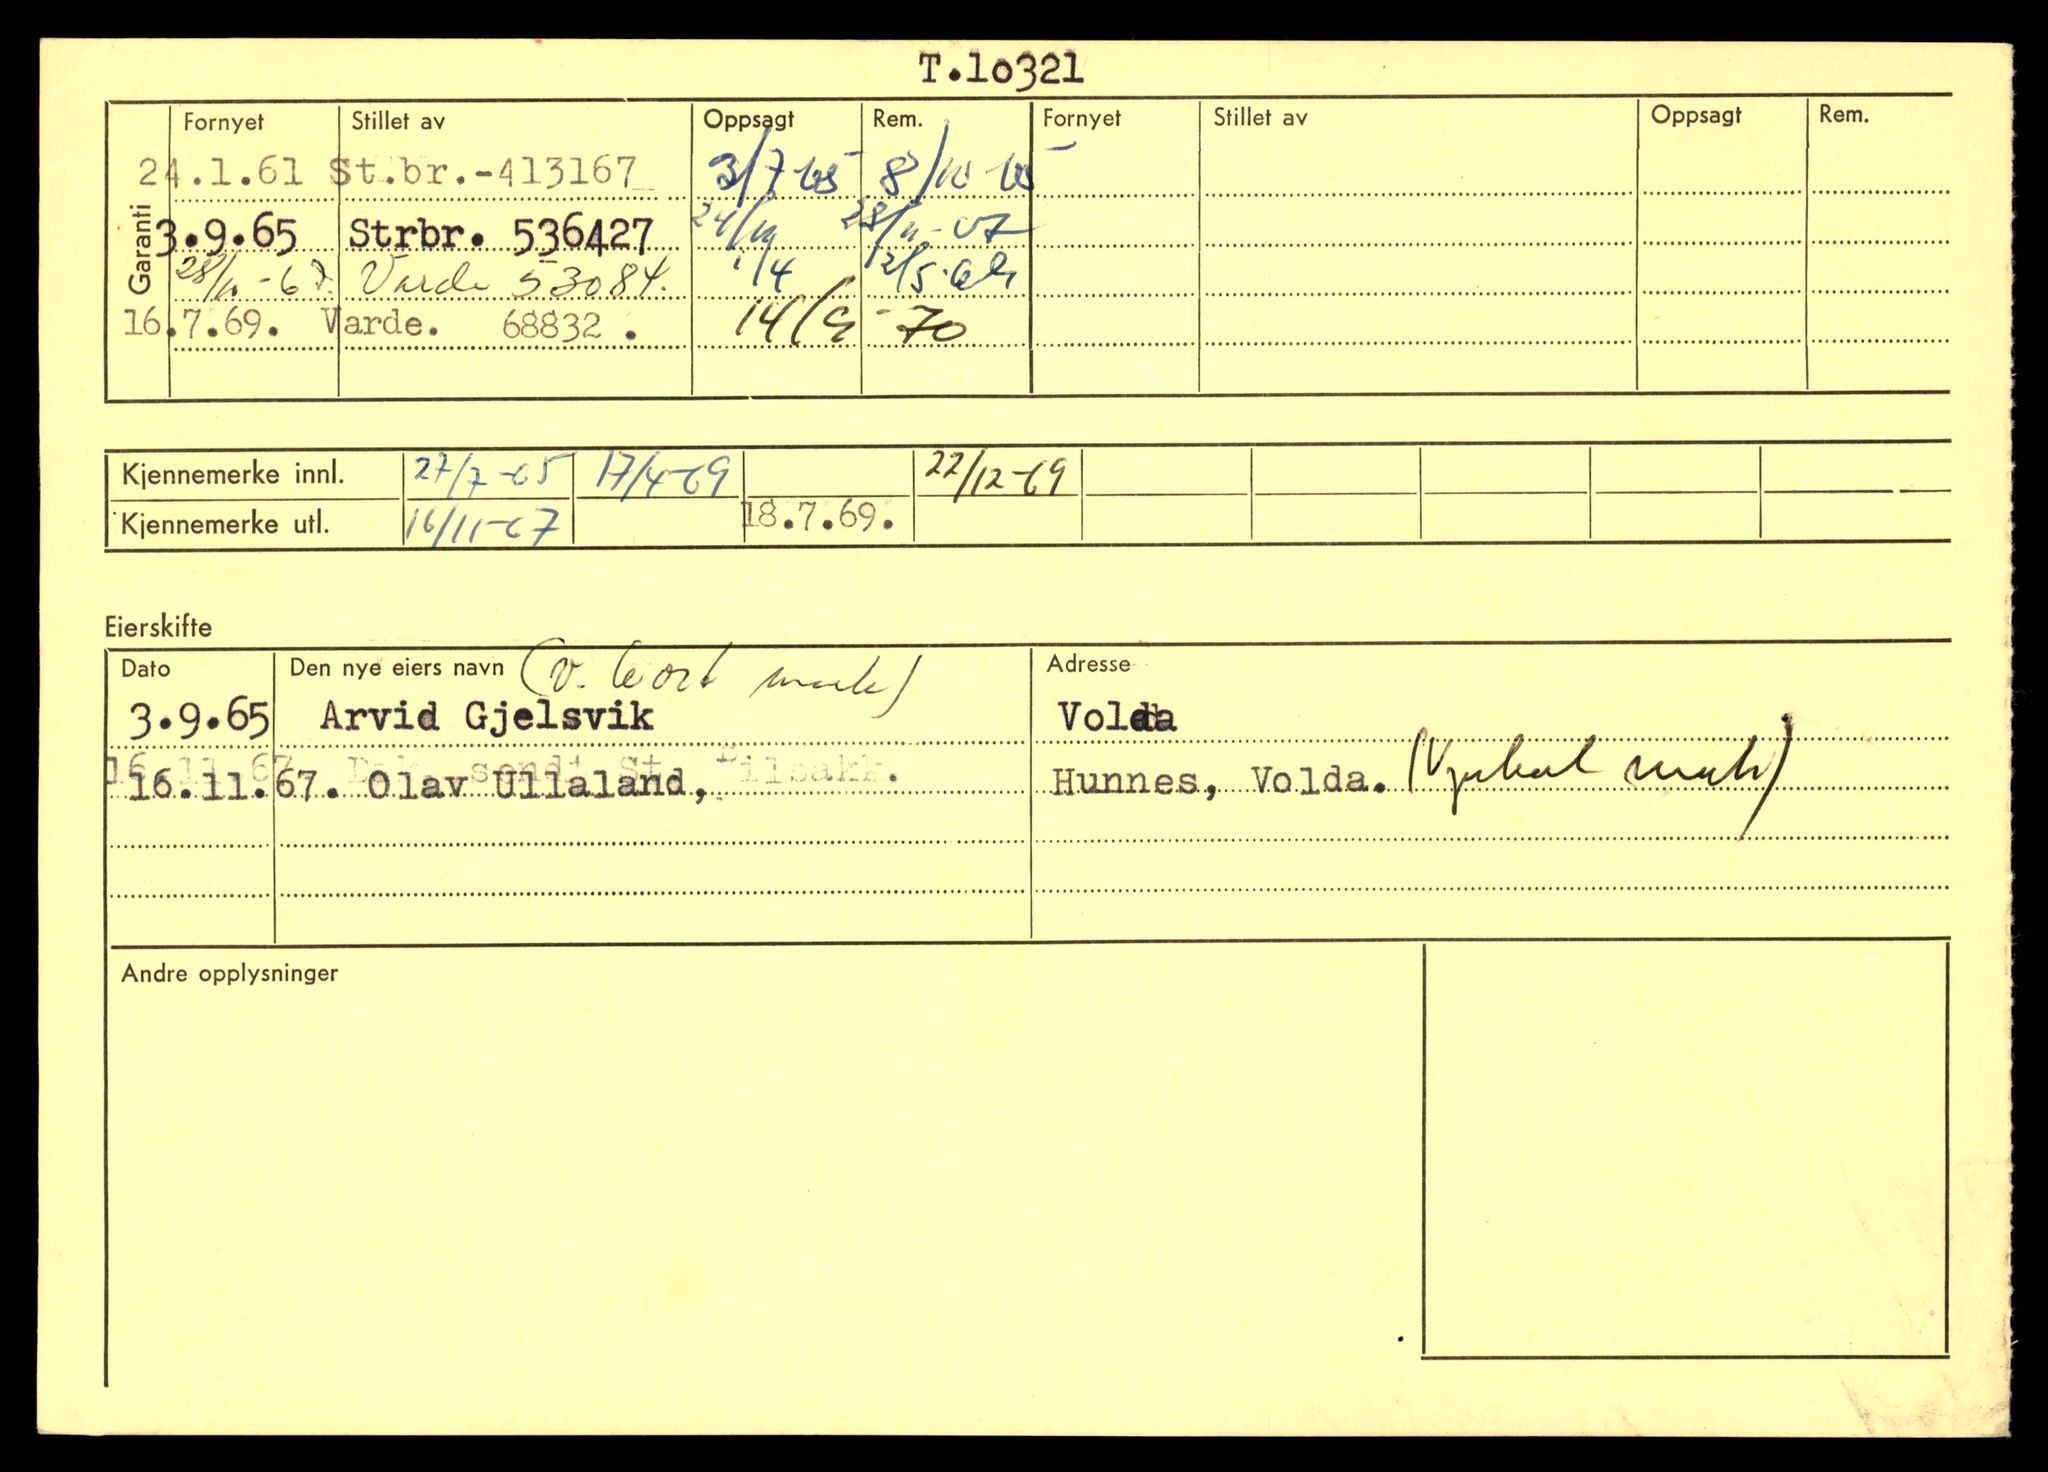 T.10321
Garanti Fornyet Stillet av Oppsagt Rem. Fornyet Stillet av Oppsagt Rem.
24.1.61 St.br.-413167 3/7-65 8/10-65
3.9.65 Strbr. 536427 28/11-67
28/11-67. Varde 53084. 1/4 12/5-69
16.7.69. Varde. 68832. 14/9-70
Kjennemerke innl. 27/7-65 17/4-69 22/12-69
Kjennemerke utl. 16/11-67 18.7.69.
Eierskifte
Dato Den nye eiers navn Adresse
3.9.65 Arvid Gjelsvik Volda
16.11.67. Olav Ullaland, Hunnes, Volda.
Andre opplysninger